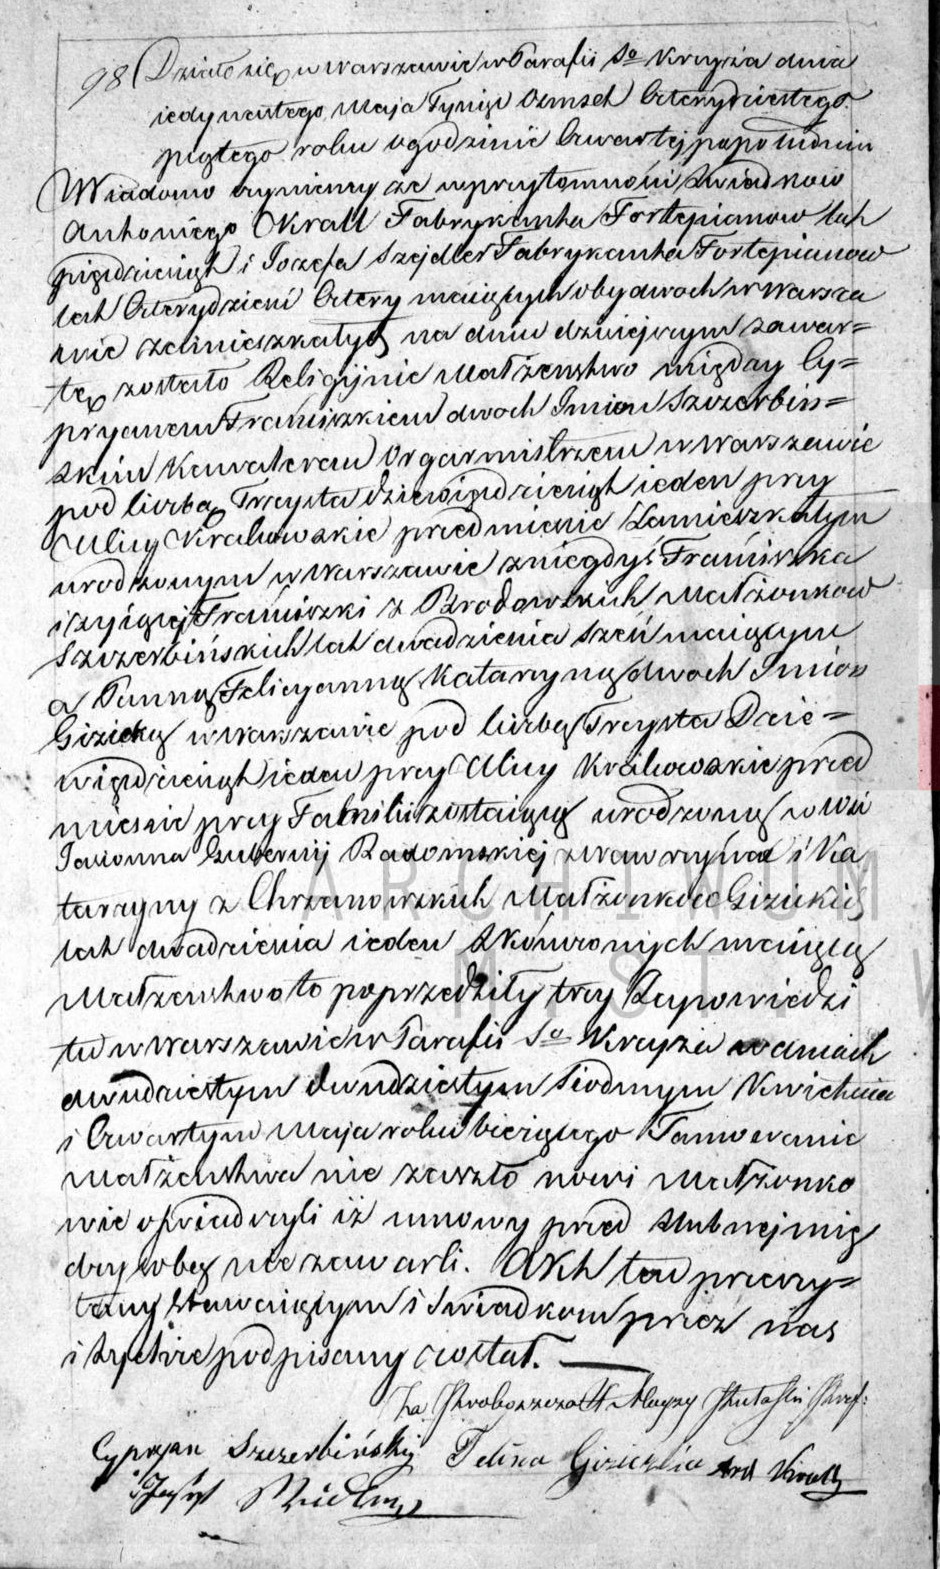 98 Działo się w Warszawie w Parafii Sgo Krzyża dnia
iedynastego Maja Tysiąc Ośmset Czterydziestego
piątego roku o godzinie Czwartej popołudniu
Wiadomo czyniemy że w przytomności Świadków
Antoniego Krall Fabrykanta Fortepianow lat
pięćdziesiąt i Jozefa Szejdler Fabrykanta Fortepianow
lat Czterydzieści Cztery maiących obydwoch w Warsza
wie zamieszkałych na dniu dzisiejszym zawar=
te zostało Religijnie Małżeństwo między Cy=
pryanem Franciszkiem dwoch Imion Szczerbiń=
skim Kawalerem Organmistrzem w Warszawie
pod liczbą Trzysta dziewięćdziesiąt ieden przy
Ulicy Krakowskie przedmieście Zamieszkałym
urodzonym w Warszawie z niegdyś Franciszka
i żyiącej Franciszki z Brodowskich Małżonkow
Szczerbińskich lat dwadzieścia sześć maiącym
a Panną Felicyanną Katarzyną dwoch Imion
Gizicką w Warszawie pod liczbą Trzysta Dzie=
więćdziesiąt ieden przy Ulicy Krakowskie przed
mieście przy Familii zostaiącą urodzoną w Wsi
Gubernij Radomskiej z Wawrzyńca i Ka
tarzyny z Chrzanowskich Małżonkow Gizickich
lat dwadzieścia ieden skończonych maiącą
Małżeństwo to poprzedziły trzy Zapowiedzi
tu w Warszawie w Parafii Sgo Krzyża w dniach
dwudziestym dwudziestym siodmym Kwietnia
i Czwartym Maja roku bieżącego Tamowanie
Małżeństwa nie zaszło nowi Małżonko
wie oświadczyli iż umowy przed ślubnej mię
dzy sobą nie zawarli. Akt ten przeczy=
tany Stawaiącym i Świadkom przez nas
i tychże podpisany został.
Za Proboszcza
Cypryan Szczerbiński Felixa Gizicka Ant Krall
Jozef